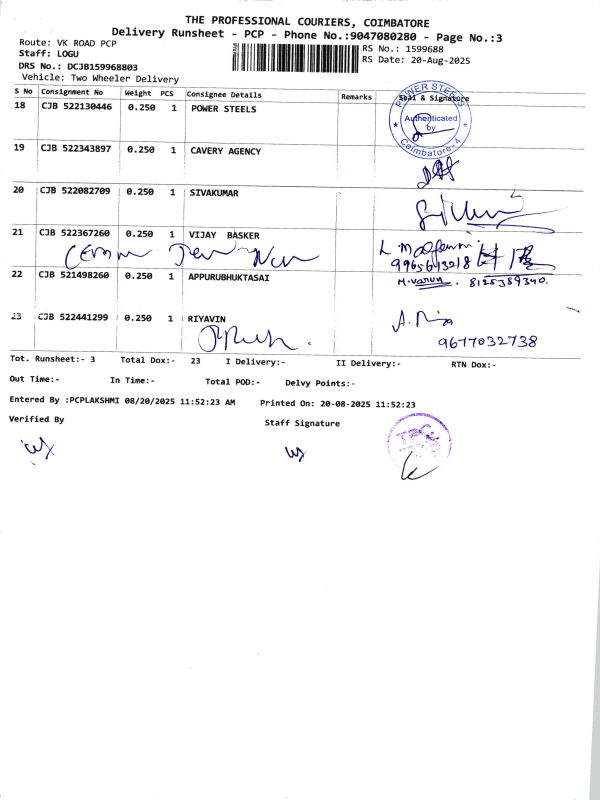 THE PROFESSIONAL COURIERS, COIMBATORE
Delivery Runsheet - PCP - Phone No.:9047080280 - Page No.:3
Route: VK ROAD PCP
RS No.: 1599688
Staff: LOGU
RS Date: 20-Aug-2025
DRS No.: DCJB159968803
Vehicle: Two Wheeler Delivery
S No Consignment No Weight PCS Consignee Details Remarks Seal & Signature
18 CJB 522130446 0.250 1 POWER STEELS
POWER STEELS
Authenticated
by
Coimbatore-4
19 CJB 522343897 0.250 1 CAVERY AGENCY
20 CJB 522082709 0.250 1 SIVAKUMAR
21 CJB 522367260 0.250 1 VIJAY BASKER
9965643218
22 CJB 521498260 0.250 1 APPURUBHUKTASAI
M.Varun. 8125389340.
23 CJB 522441299 0.250 1 RIYAVIN
9677032738
Tot. Runsheet:- 3 Total Dox:- 23 I Delivery:- II Delivery:- RTN Dox:-
Out Time:- In Time:- Total POD:- Delvy Points:-
Entered By :PCPLAKSHMI 08/20/2025 11:52:23 AM Printed On: 20-08-2025 11:52:23
Verified By Staff Signature